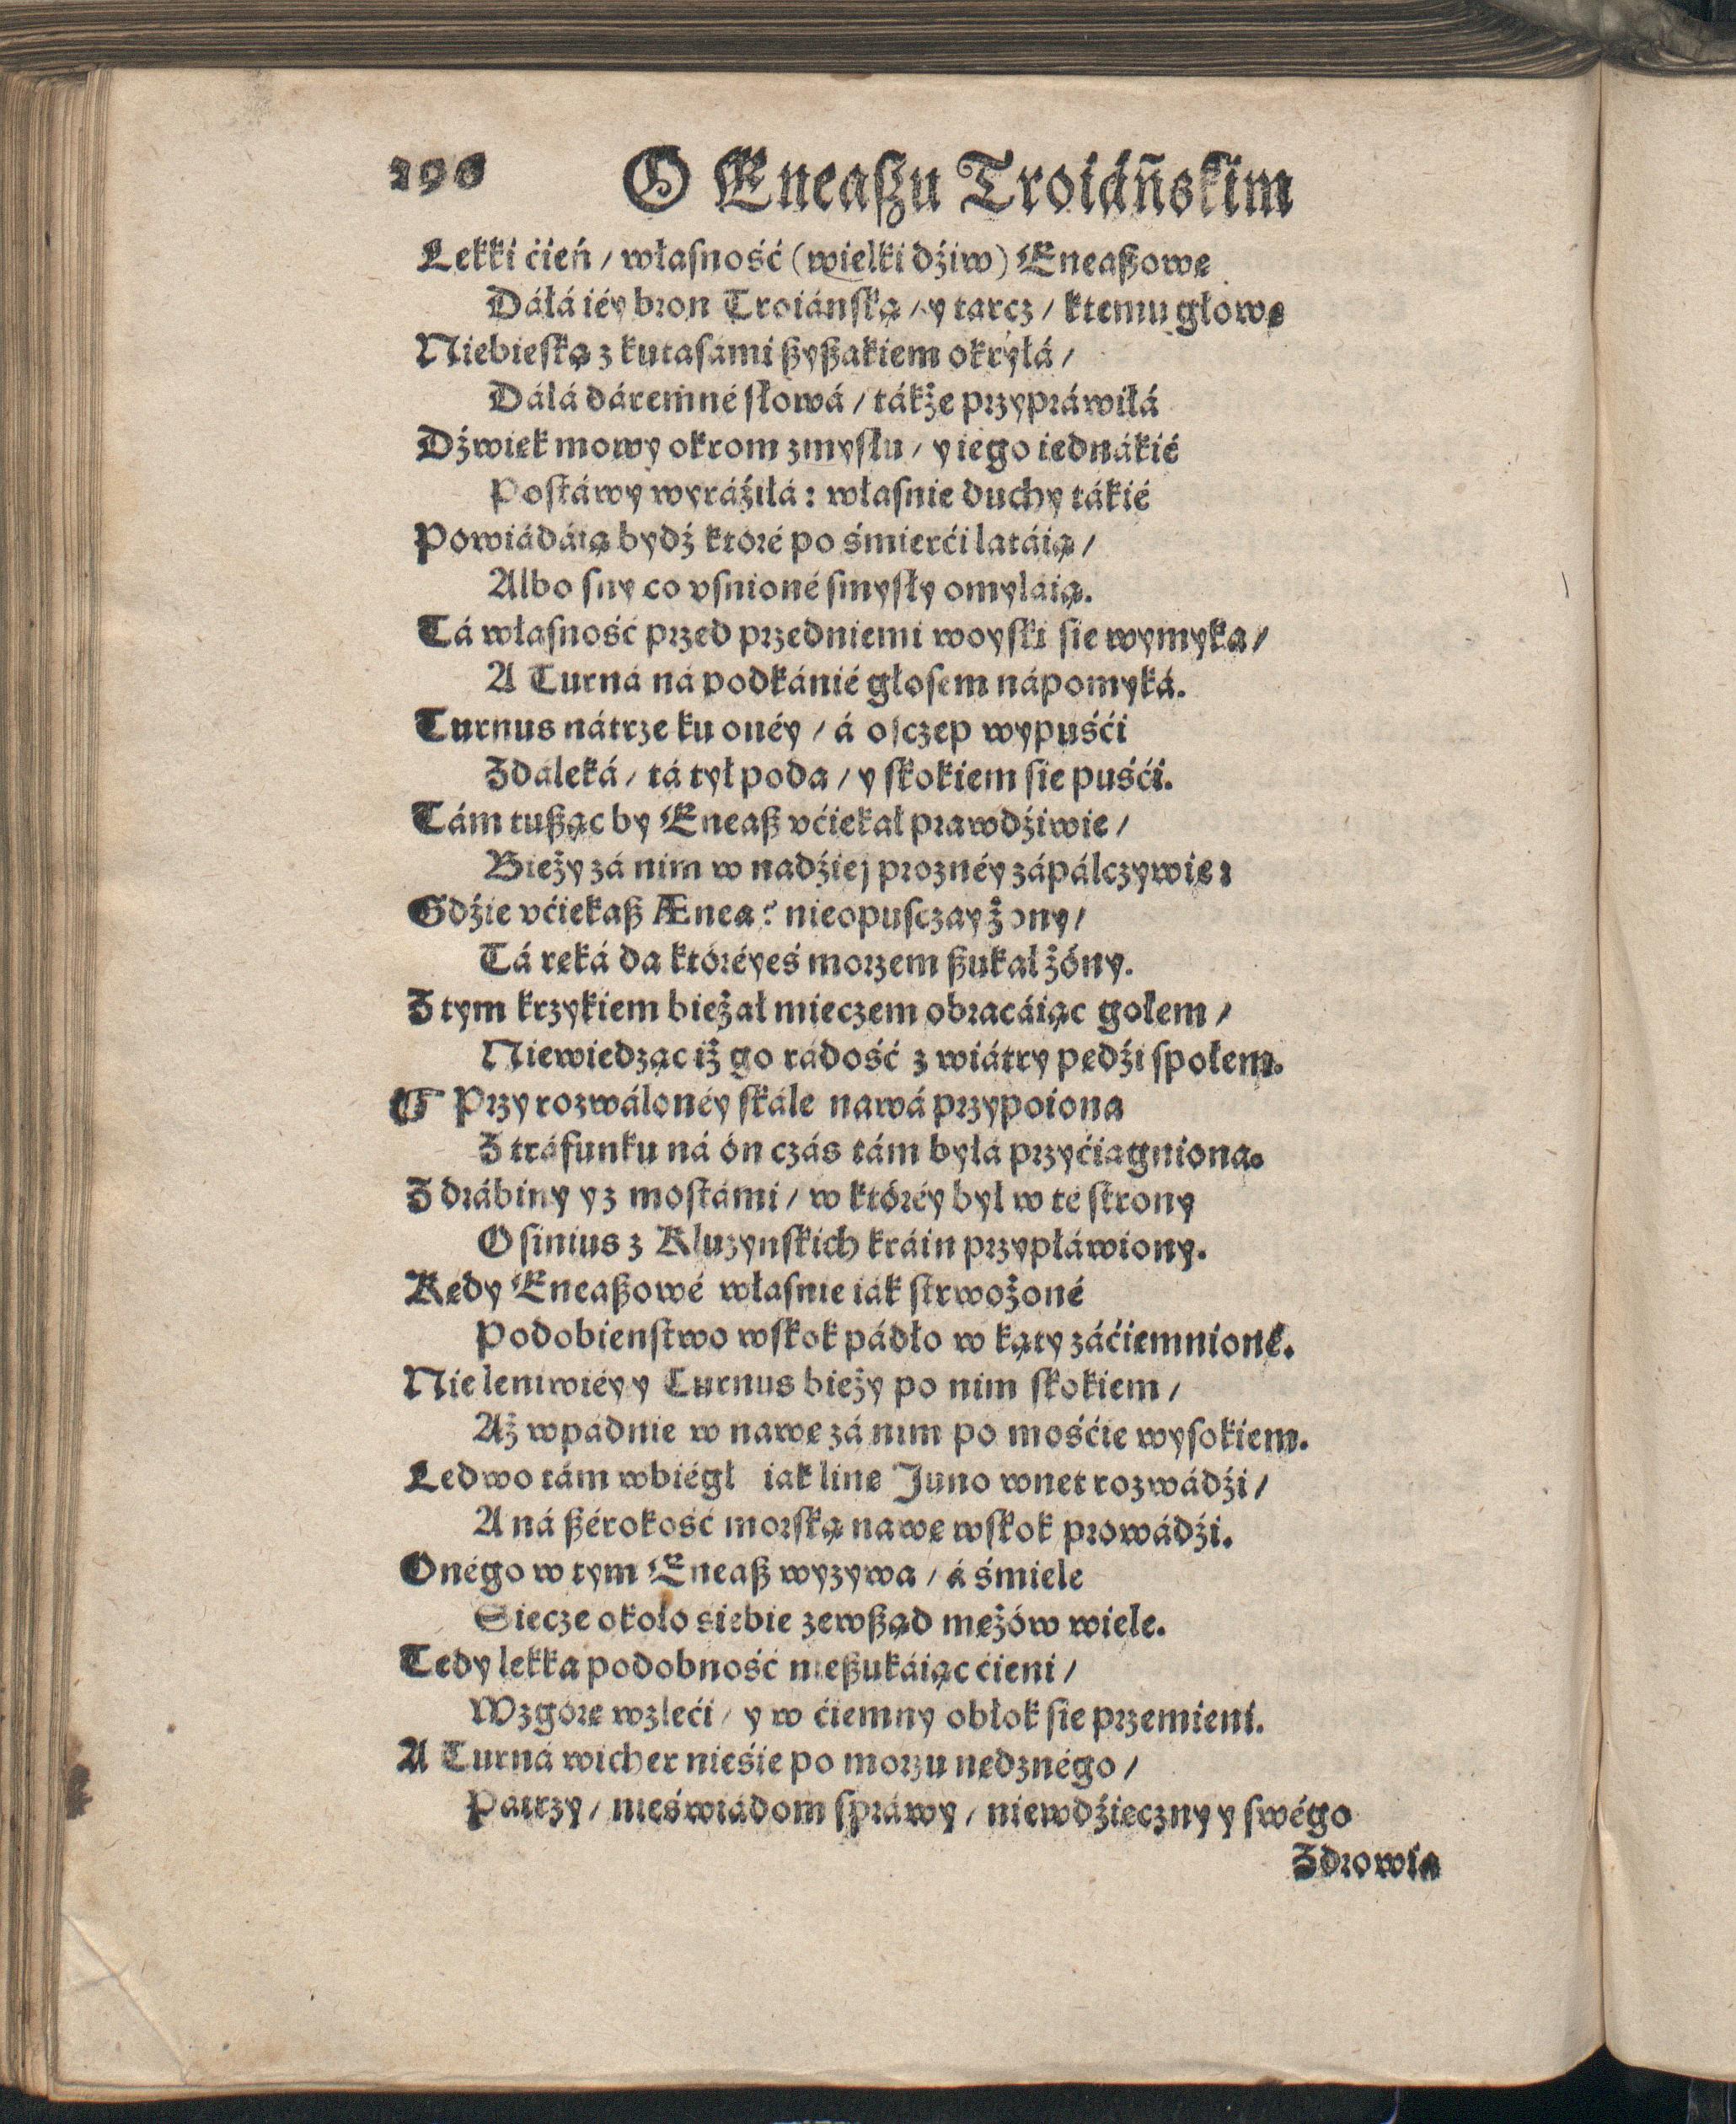 296 O Eneaßu Troiáñskim
Lekki ćień / własność (wielki dźiw) Eneaßowę
Dáłá iéy bron Troiánską / y tarcz / ktemu głowę
Niebieską z kutasámi ßyßakiem okryłá /
Dáłá dáremné słowá / tákże przypráwiłá
Dźwięk mowy okrom zmysłu / y iego iednákié
Postáwy wyráźiłá : własnie duchy tákié
Powiádáią bydź któré po śmierći latáią /
Albo sny co vsnioné smysły omylaią.
Tá własność przed przedniemi woyski sie wymyka /
A Turná ná podkánié głosem nápomyká.
Turnus nátrze ku onéy / á osczep wypuśći
Zdaleká / tá tył poda / y skokiem sie puśći.
Tám tußąc by Eneaß vćiekał prawdźiwie /
Bieży zá nim w nadźiej proznéy zápálczywie :
Gdźie vćiekaß Ænea ? nieopusczay żony /
Tá ręká da któréyeś morzem ßukał żóny.
Z tym krzykiem bieżał mieczem obracáiąc gołem /
Niewiedząc iż go rádość z wiátry pędźi społem.
¶ Przy rozwálonéy skále nawá przypoiona
Z tráfunku ná ón czás tám byłá przyćiągniona.
Z drábiny y z mostámi / w któréy był w té strony
Osinius z Kluzynskich kráin przypłáwiony.
Kędy Eneaßowé własnie iák strwożoné
Podobienstwo wskok pádło w kąty záćiemnioné.
Nie leniwiéy y Turnus bieży po nim skokiem /
Aż wpádnie w nawę zá nim po mośćie wysokiem.
Ledwo tám wbiégł iak linę Juno wnet rozwádźi /
A ná ßérokość morską nawę wskok prowádźi.
Onégo w tym Eneaß wyzywa / á śmiele
Siecze około siebie zewßąd mężów wiele.
Tedy lekka podobność nießukáiąc ćieni /
Wzgórę wzleći / y w ćiemny obłok sie przemieni.
A Turná wicher nieśie po morzu nędznégo /
Patrzy / nieświádom spráwy / niewdźięczny y swégo
Zdrowia